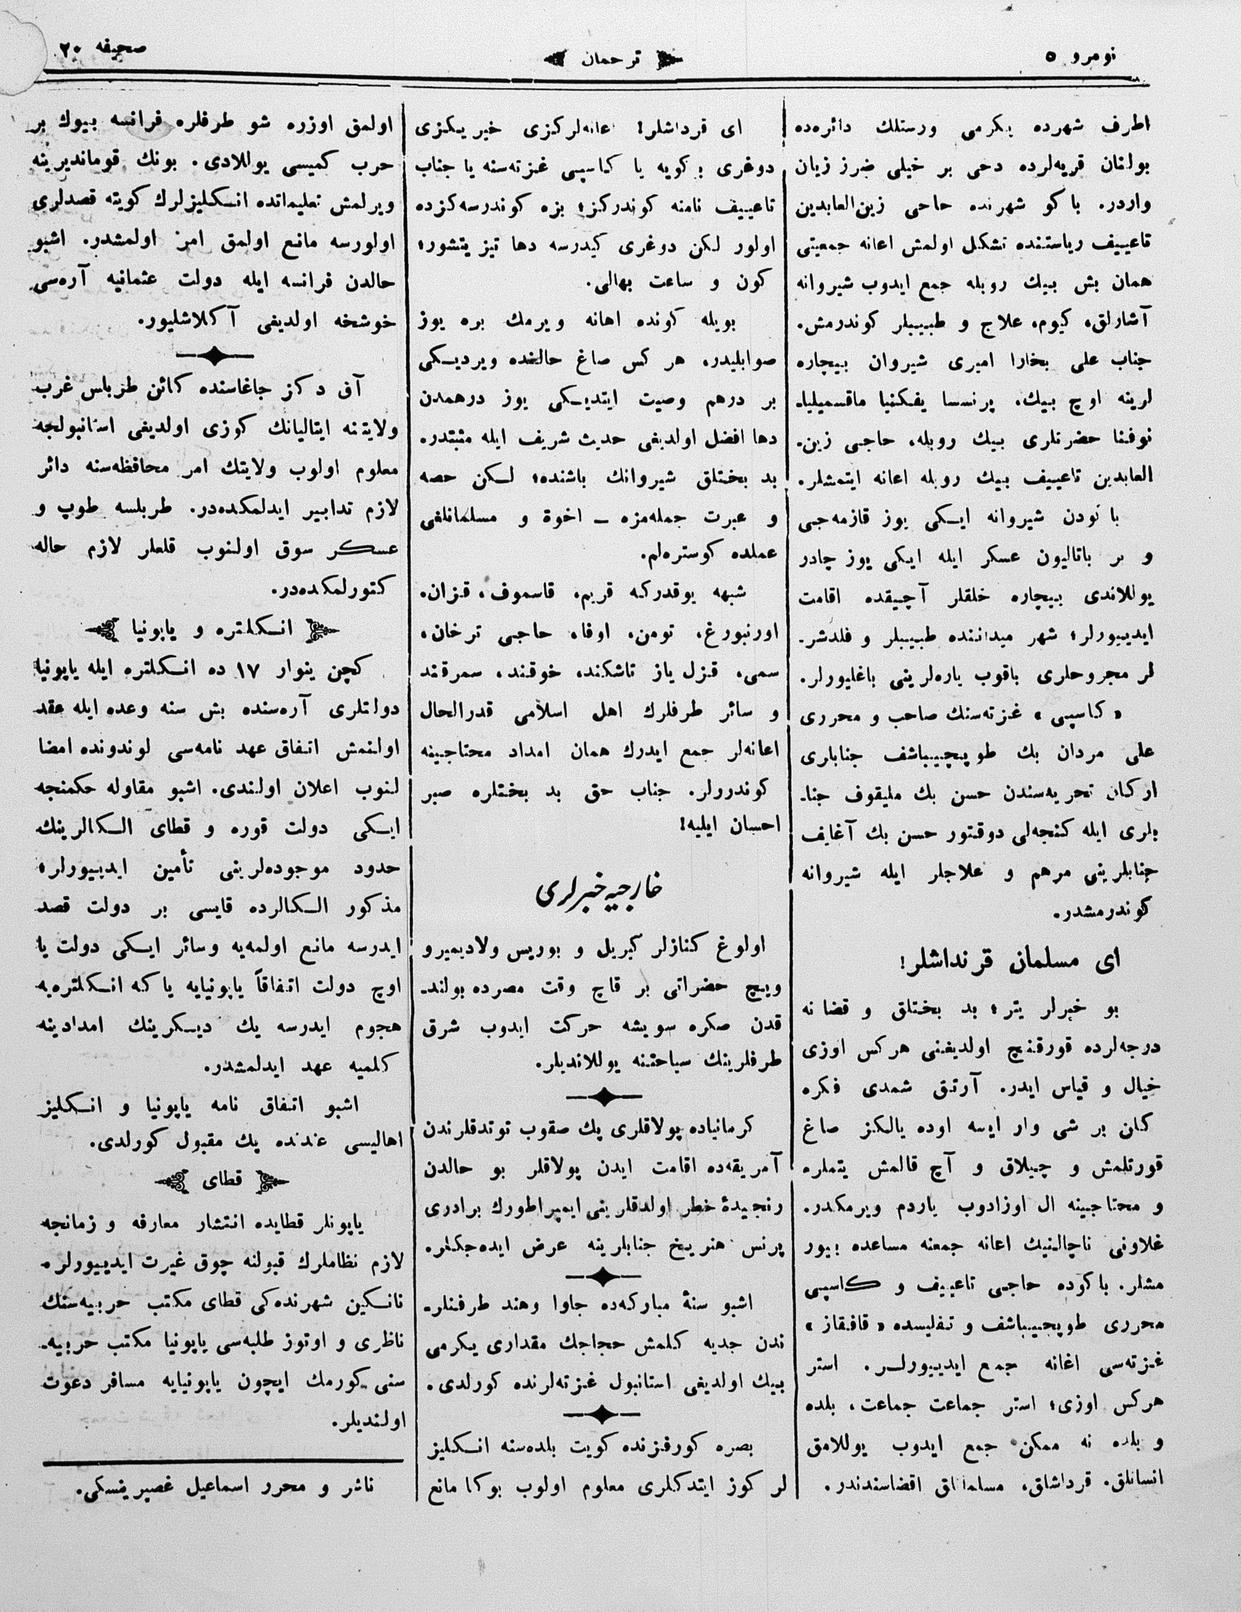 نومرو ٥
ترجمان
صحيفه ٢٠
اطرف شهرده يكرمى ورستلك دائره‌ده
بولنان قريه‌لرده دخى بر خيلى ضرر زيان
واردر. باكو شهرنده حاجى زين‌العابدين
تاعييف رياستنده تشكل اولمش اعانه جمعيتى
همان بش بيك روبله جمع ايدوب شيروانه
آشارلق، كيوم، علاج و طبيبلر كوندرمش.
جناب على بخارا اميرى شيروان بيچاره
لرينه اوچ بيك، پرنسسا يفكنيا ماقسميليا-
نوفنا حضرتلرى بيك روبله، حاجى زين-
العابدين تاعييف بيك روبله اعانه ايتمشلر.
باكودن شيروانه ايكى يوز قازمه‌جى
و بر باتاليون عسكر ايله ايكى يوز چادر
يوللاندى بيچاره خلقلر آچيقده اقامت
ايدييورلر؛ شهر ميداننده طبيبلر و فلدشر-
لر مجروحلرى باقوب ياره‌لرينى باغليورلر.
« كاسپى » غزته‌سنك صاحب و محررى
على مردان بك طوپچيباشف جنابلرى
اركان تحريه‌سندن حسن بك مليقوف جنا-
بلرى ايله كنجه‌لى دوقتور حسن بك آغايف
جنابلرينى مرهم و علاجلر ايله شيروانه
كوندرمشدر.
اى مسلمان قرنداشلر!
بو خبرلر يتر؛ بد بختلق و قضا نه
درجه‌لرده قورقنچ اولديغنى هركس اوزى
خيال و قياس ايدر. آرتق شمدى فكره
كان بر شى وار ايسه اوده يالكز صاغ
قورتلمش و چيپلاق و آچ قالمش يتملره
و محتاجينه ال اوزادوب ياردم ويرمكدر.
غلاونى ناچالنيك اعانه جمعنه مساعده بيور
مشلر. باكوده حاجى تاعييف و كاسپى
محررى طوپچيباشف و تفليسده « قافقاز »
غزته‌سى اغانه جمع ايدييورلر. استر
هركس اوزى؛ استر جماعت جماعت، بلده
و بلده نه ممكن جمع ايدوب يوللامق
انسانلق. قرداشلق، مسلمانلق اقضاسندندر.
اى قرداشلر! اعانه‌لركزى خبريكزى
دوغرى باكويه يا كاسپى غزته‌سنه يا جناب
تاعييف نامنه كوندركز؛ بزه كوندرسه‌كزده
اولور لكن دوغرى كيدرسه دها تيز يتشور؛
كون و ساعت بهالى.
بويله كونده اهانه ويرمك بره يوز
صوابليدر. هر كس صاغ حالنده ويرديكى
بر درهم وصيت ايتديكى يوز درهمدن
دها افضل اولديغى حديث شريف ايله مثبتدر.
بد بختلق شيروانك باشنده؛ لكن حصه
و عبرت جمله‌مزه - اخوة و مسلمانلغى
عملده كوستره‌لم.
شبهه يوقدركه قريم، قاسموف، قزان،
اورنبورغ، تومن، اوفا، حاجى ترخان،
سمى، قزل ياز تاشكند، خوقند، سمرقند
و سائر طرفلرك اهل اسلامى قدرالحال
اعانه‌لر جمع ايدرك همان امداد محتاجينه
كوندرولر. جناب حق بد بختلره صبر
احسان ايليه!
خارجيه خبرلرى
اولوغ كنازلر كيريل و بوريس ولاديميرو
ويچ حضراتى بر قاچ وقت مصرده بولند-
قدن صكره سويشه حركت ايدوب شرق
طرفلرينك سياحتنه يوللانديلر.
كرمانياده پولاقلرى پك صقوب توتدقلرندن
آمريقه‌ده اقامت ايدن پولاقلر بو حالدن
رنجيدهٔ خطر اولدقلرينى ايمپراطورك برادرى
پرنس هنريخ جنابلرينه عرض ايده‌جكلر.
اشبو سنهٔ مباركه‌ده جاوا وهند طرفنلر-
ندن جديه كلمش حجاجك مقدارى يكرمى
بيك اولديغى استانبول غزته‌لرنده كورلدى.
بصره كورفزنده كويت بلده‌سنه انكليز
لر كوز ايتدكلرى معلوم اولوب بوكا مانع
اولمق اوزره شو طرفلره فرانسه بيوك بر
حرب كميسى يوللادى. بونك قومانديرينه
ويرلمش تعليماتده انكليزلرك كويته قصدلرى
اولورسه مانع اولمق امر اولمشدر. اشبو
حالدن فرانسه ايله دولت عثمانيه آره‌سى
خوشخه اولديغى آكلاشليور.
آق دكز جاغاسنده كائن طربلس غرب
ولايتنه ايتاليانك كوزى اولديغى استانبولجه
معلوم اولوب ولايتك امر محافظه‌سنه دائر
لازم تدابير ايدلمكده‌در. طربلسه طوپ و
عسكر سوق اولنوب قلعلر لازم حاله
كتورلمكده‌در.
انكلتره و ياپونيا
كچن ينوار ١٧ ده انكلتره ايله ياپونيا
دولتلرى آره‌سنده بش سنه وعده ايله عقد
اولنمش اتفاق عهد نامه‌سى لوندونده امضا
لنوب اعلان اولندى. اشبو مقاوله حكمنجه
ايكى دولت قوره و قطاى الكالرينك
حدود موجوده‌لرينى تأمين ايدييورلر؛
مذكور الكالرده قايسى بر دولت قصد
ايدرسه مانع اولمه‌يه وسائر ايكى دولت يا
اوچ دولت اتفاقاً ياپونيايه يا كه انكلتره‌يه
هجوم ايدرسه يك ديكرينك امدادينه
كلميه عهد ايدلمشدر.
اشبو اتفاق نامه ياپونيا و انكليز
اهاليسى عندنده پك مقبول كورلدى.
قطاى
ياپونلر قطايده انتشار معارفه و زمانجه
لازم نظاملرك قبولنه چوق غيرت ايدييورلر.
نانكين شهرنده‌كى قطاى مكتب حربيه‌سنك
ناظرى و اوتوز طلبه‌سى ياپونيا مكتب حربيه-
سنى كورمك ايچون ياپونيايه مسافر دعوت
اولنديلر.
ناشر و محرر اسماعيل غصپرينسكى.